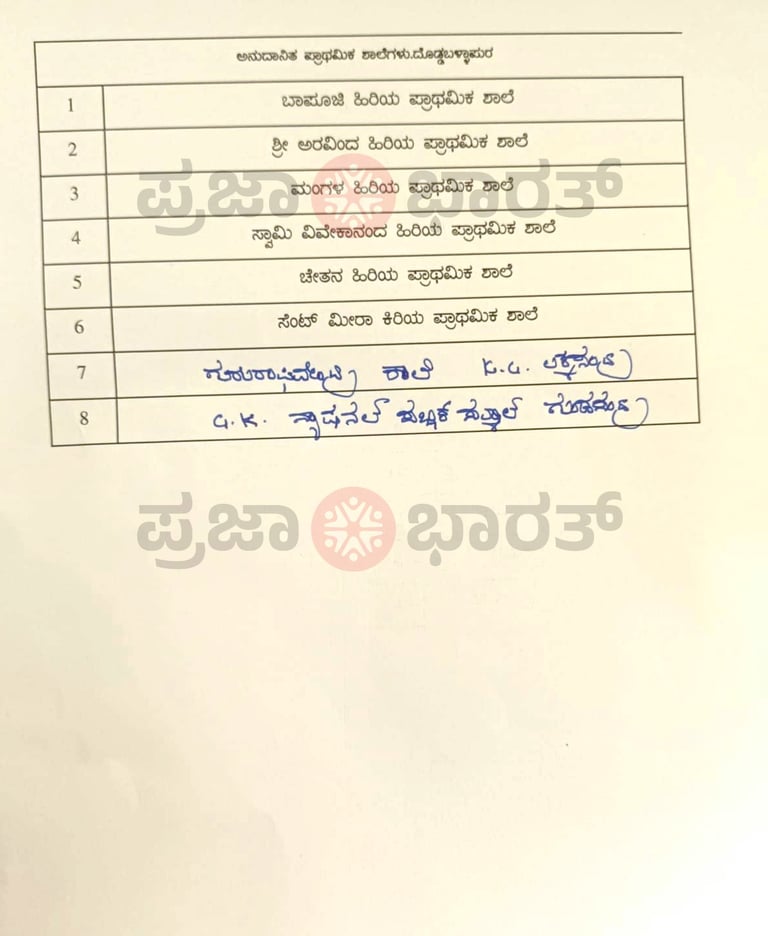 ಅನುದಾನಿತ ಪ್ರಾಥಮಿಕ ಶಾಲೆಗಳು.ದೊಡ್ಡಬಳ್ಳಾಪುರ
1 ಬಾಪೂಜಿ ಹಿರಿಯ ಪ್ರಾಥಮಿಕ ಶಾಲೆ
2 ಶ್ರೀ ಅರವಿಂದ ಹಿರಿಯ ಪ್ರಾಥಮಿಕ ಶಾಲೆ
3 ಮಂಗಳ ಹಿರಿಯ ಪ್ರಾಥಮಿಕ ಶಾಲೆ
ಪ್ರಜಾ ಭಾರತ್
4 ಸ್ವಾಮಿ ವಿವೇಕಾನಂದ ಹಿರಿಯ ಪ್ರಾಥಮಿಕ ಶಾಲೆ
5 ಚೇತನ ಹಿರಿಯ ಪ್ರಾಥಮಿಕ ಶಾಲೆ
6 ಸೆಂಟ್ ಮೀರಾ ಕಿರಿಯ ಪ್ರಾಥಮಿಕ ಶಾಲೆ
7 ಶಾಲೆ K.G.
8 G.K. ನ್ಯಾಷನಲ್
ಪ್ರಜಾ ಭಾರತ್